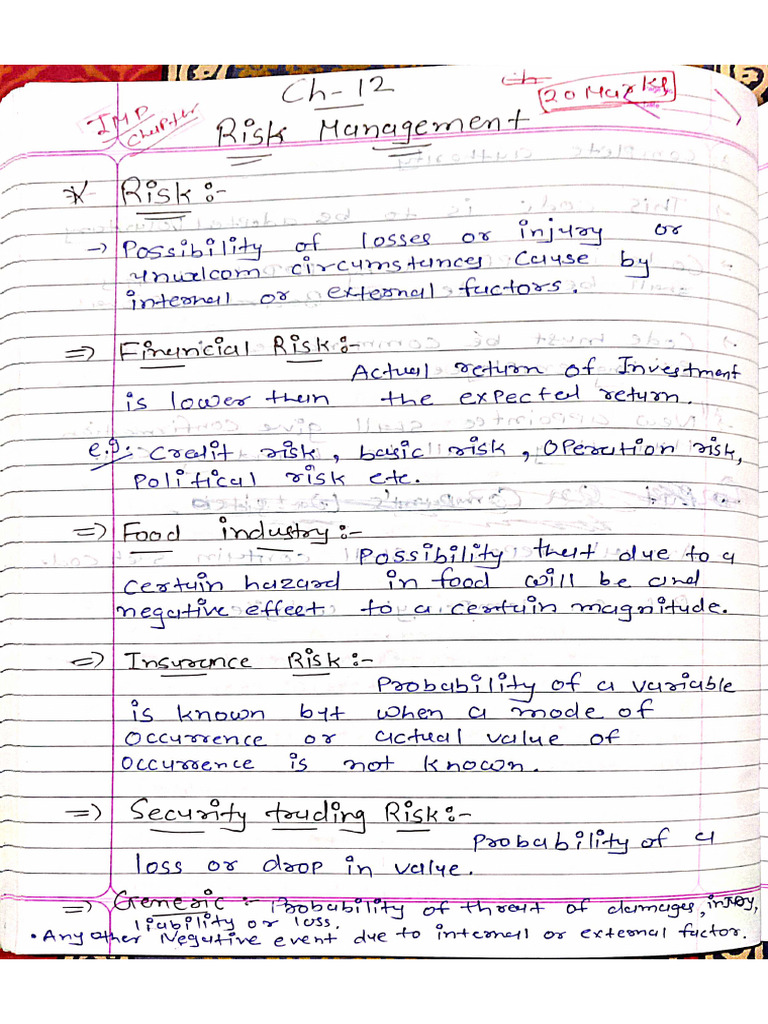 Ch-12
20 Marks
IMP
Chapter
Risk Management
* Risk:-
→ Possibility of losses or injury or
unuxlcom circumstances cause by
internal or external factors.
⇒ Financial Risk:-
Actual return of Investment
is lower then the expected return.
e.g: Credit risk, basic risk, Operation risk,
Political risk etc.
⇒ Food industry:-
Possibility that due to a
certain hazard in food will be and
negative effect to a certain magnitude.
⇒ Insurance Risk:-
Probability of a variable
is known byt when a mode of
occurrence or actual value of
occurrence is not known.
⇒ Security trading Risk:-
Probability of a
loss or drop in value.
⇒ Generic :- Probability of threat of damages, injury,
liability or loss.
• Any other Negative event due to internall or external factor.